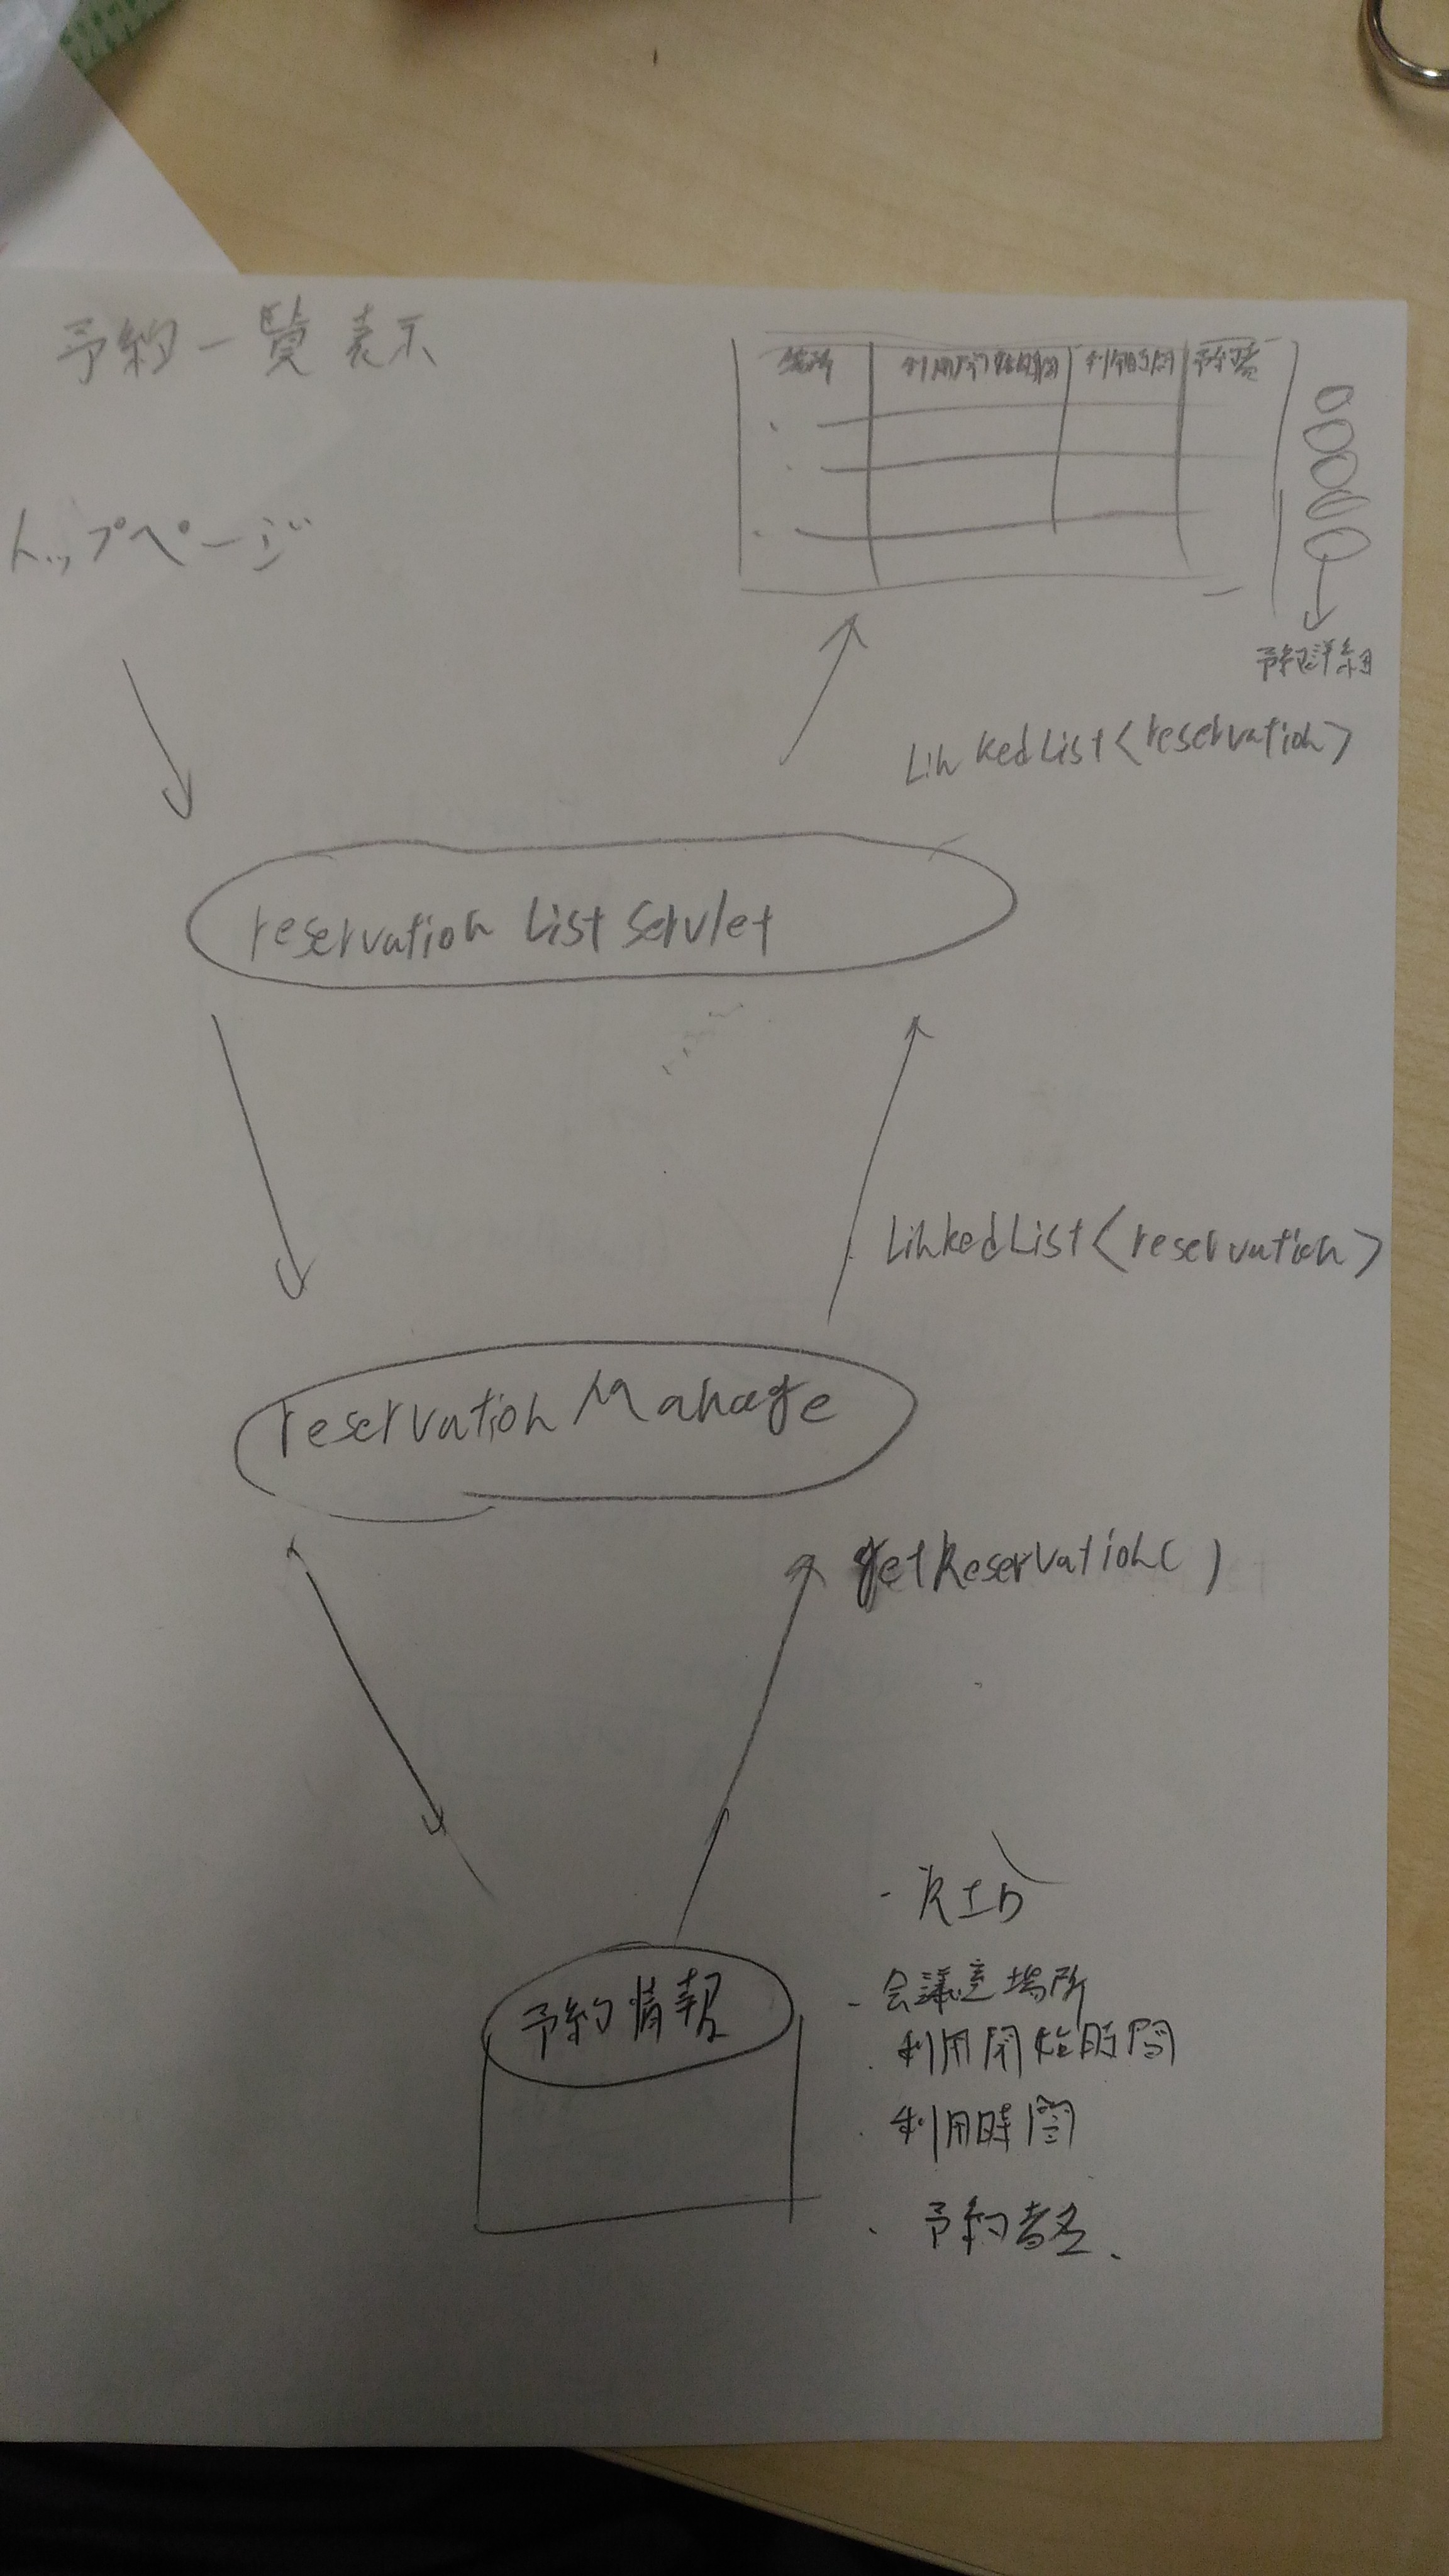 予約一覧表示
場所 利用開始時間 利用時間 予約者
トップページ
予約詳細
LinkedList<reservation>
reservation List Servlet
LinkedList<reservation>
reservation Manage
getReservation( )
- RID
- 会議室場所
・利用開始時間
・利用時間
予約情報
・予約者名